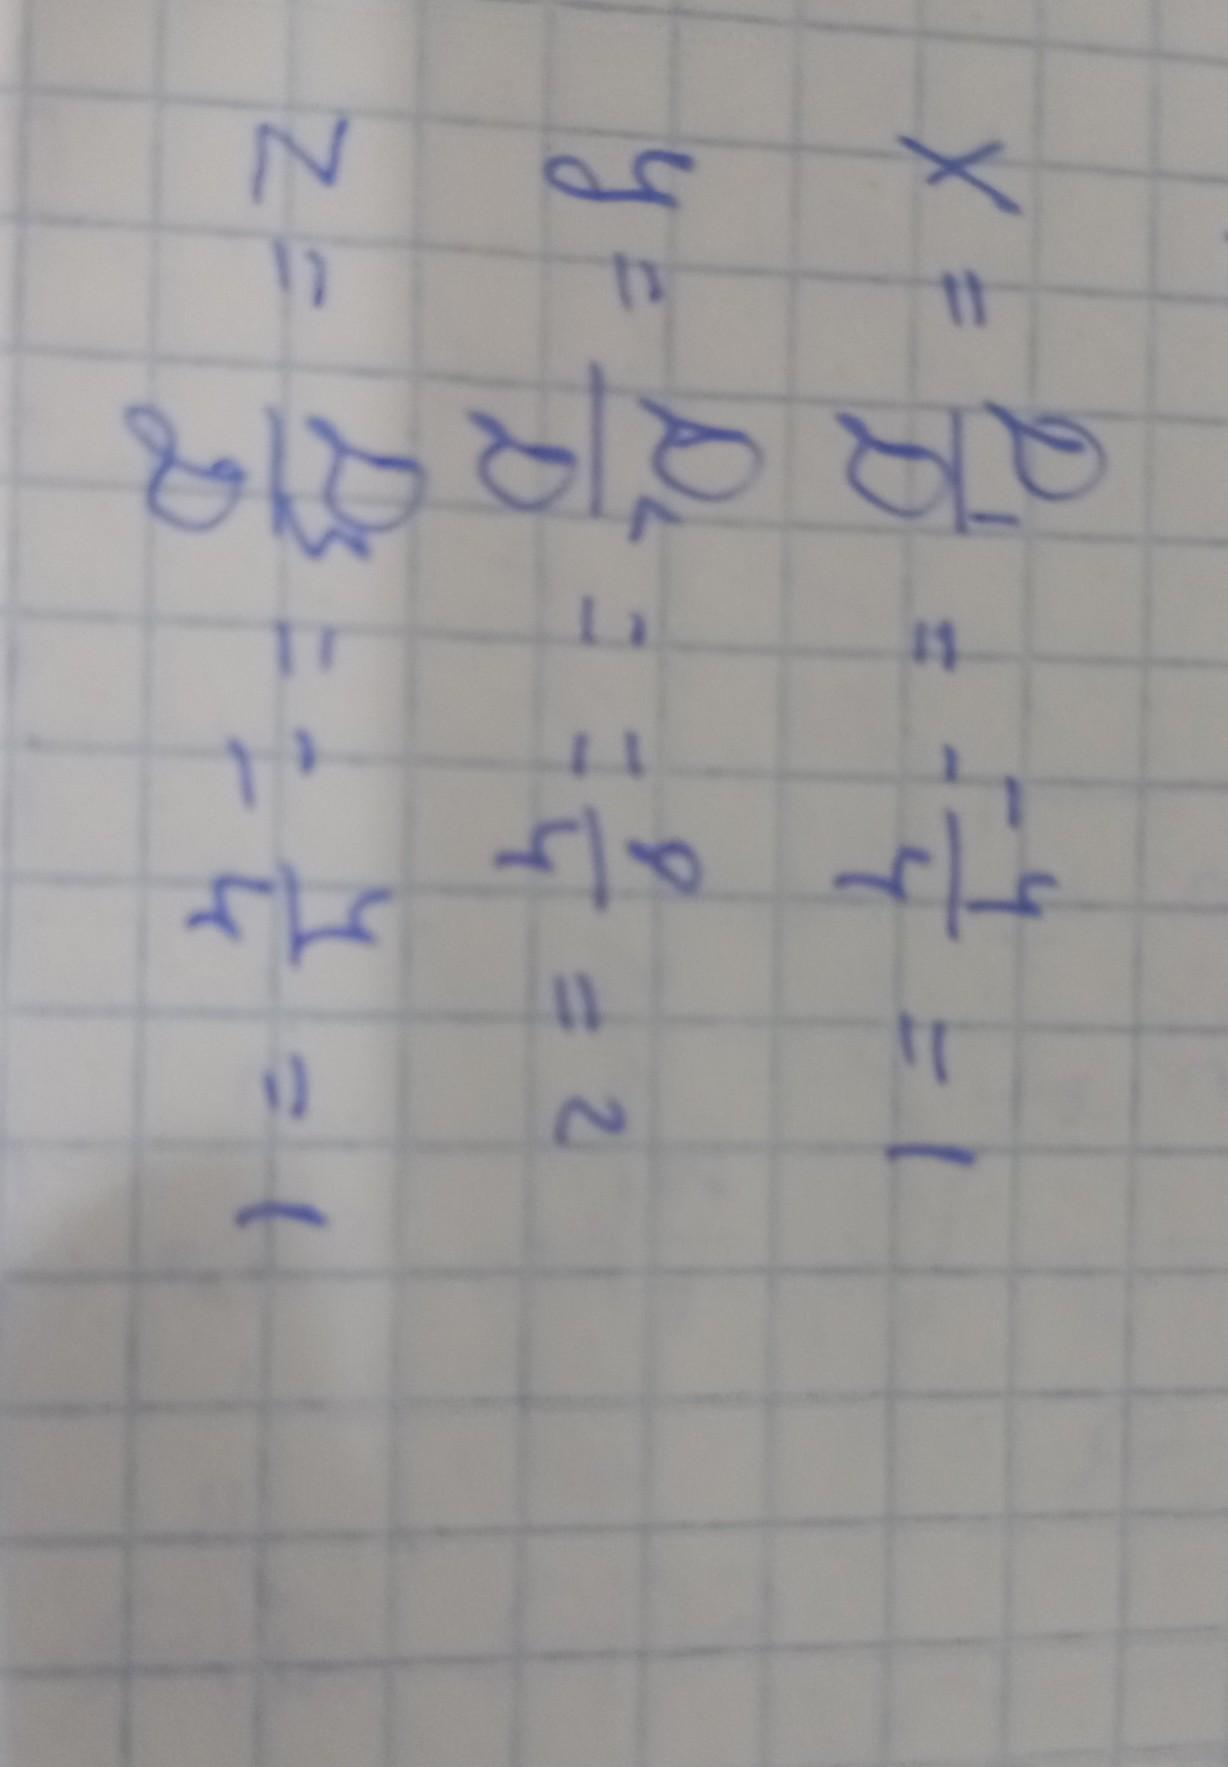 x = ∂₁/∂ = - -4/4 = 1
y = ∂₂/∂ = = 8/4 = 2
z = ∂₃/∂ = -4/-4 = 1